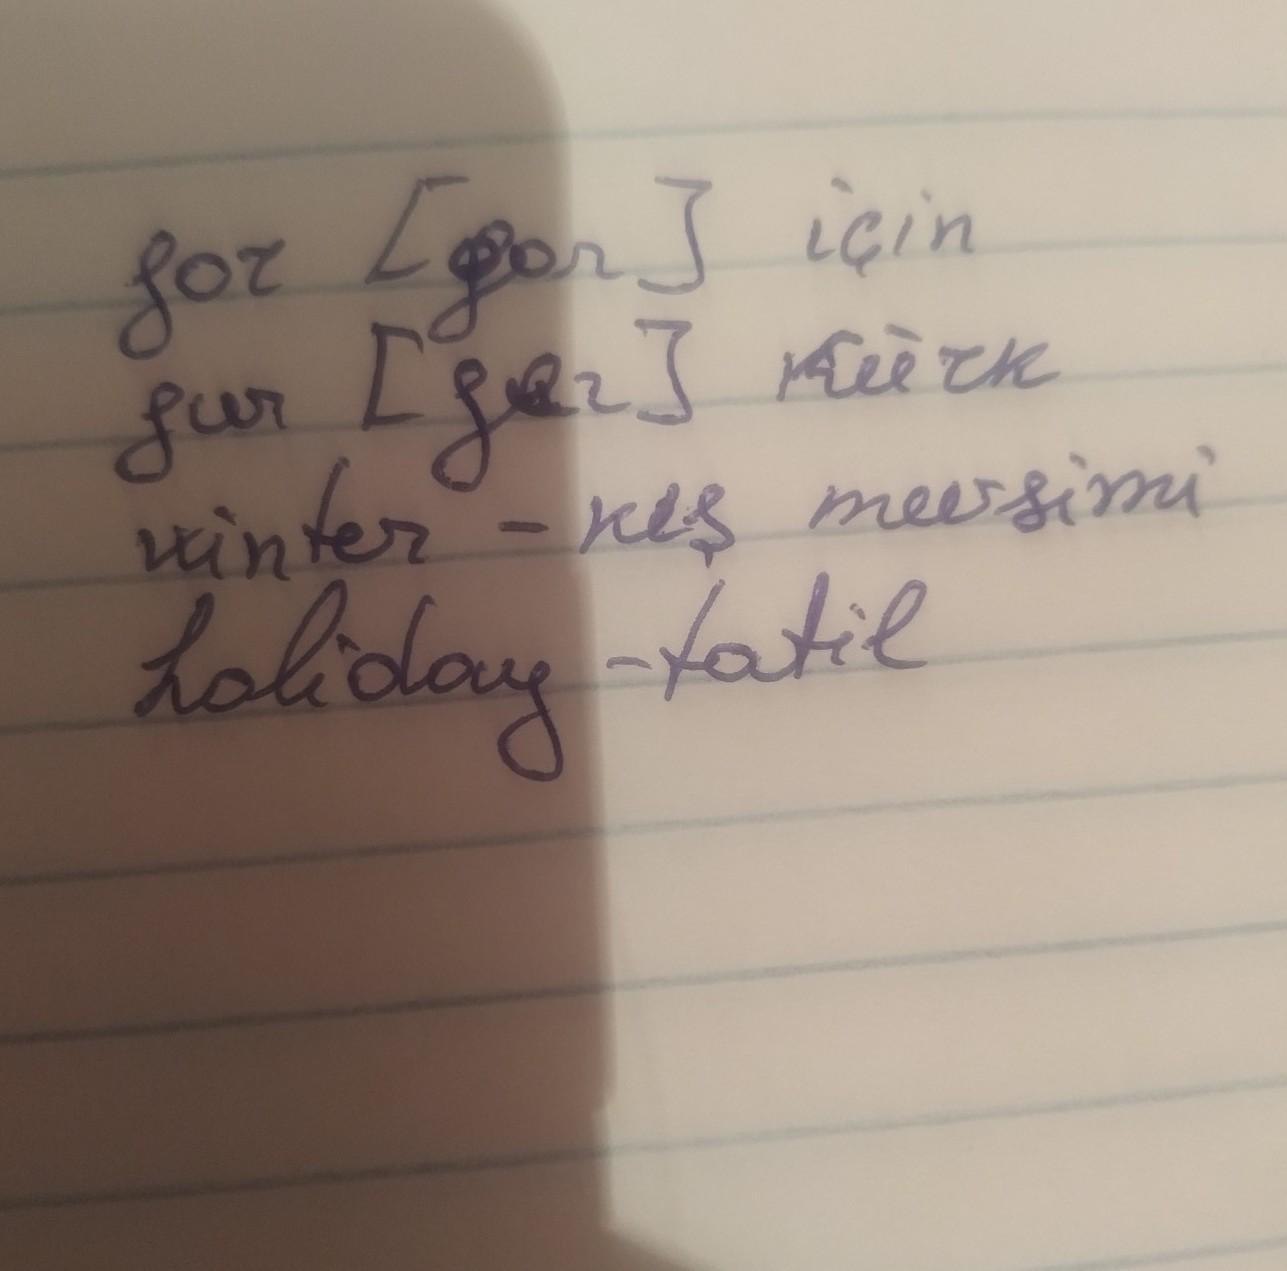 for [for] için
fur [fer] Kürk
winter - kış mevsimi
holiday - tatil